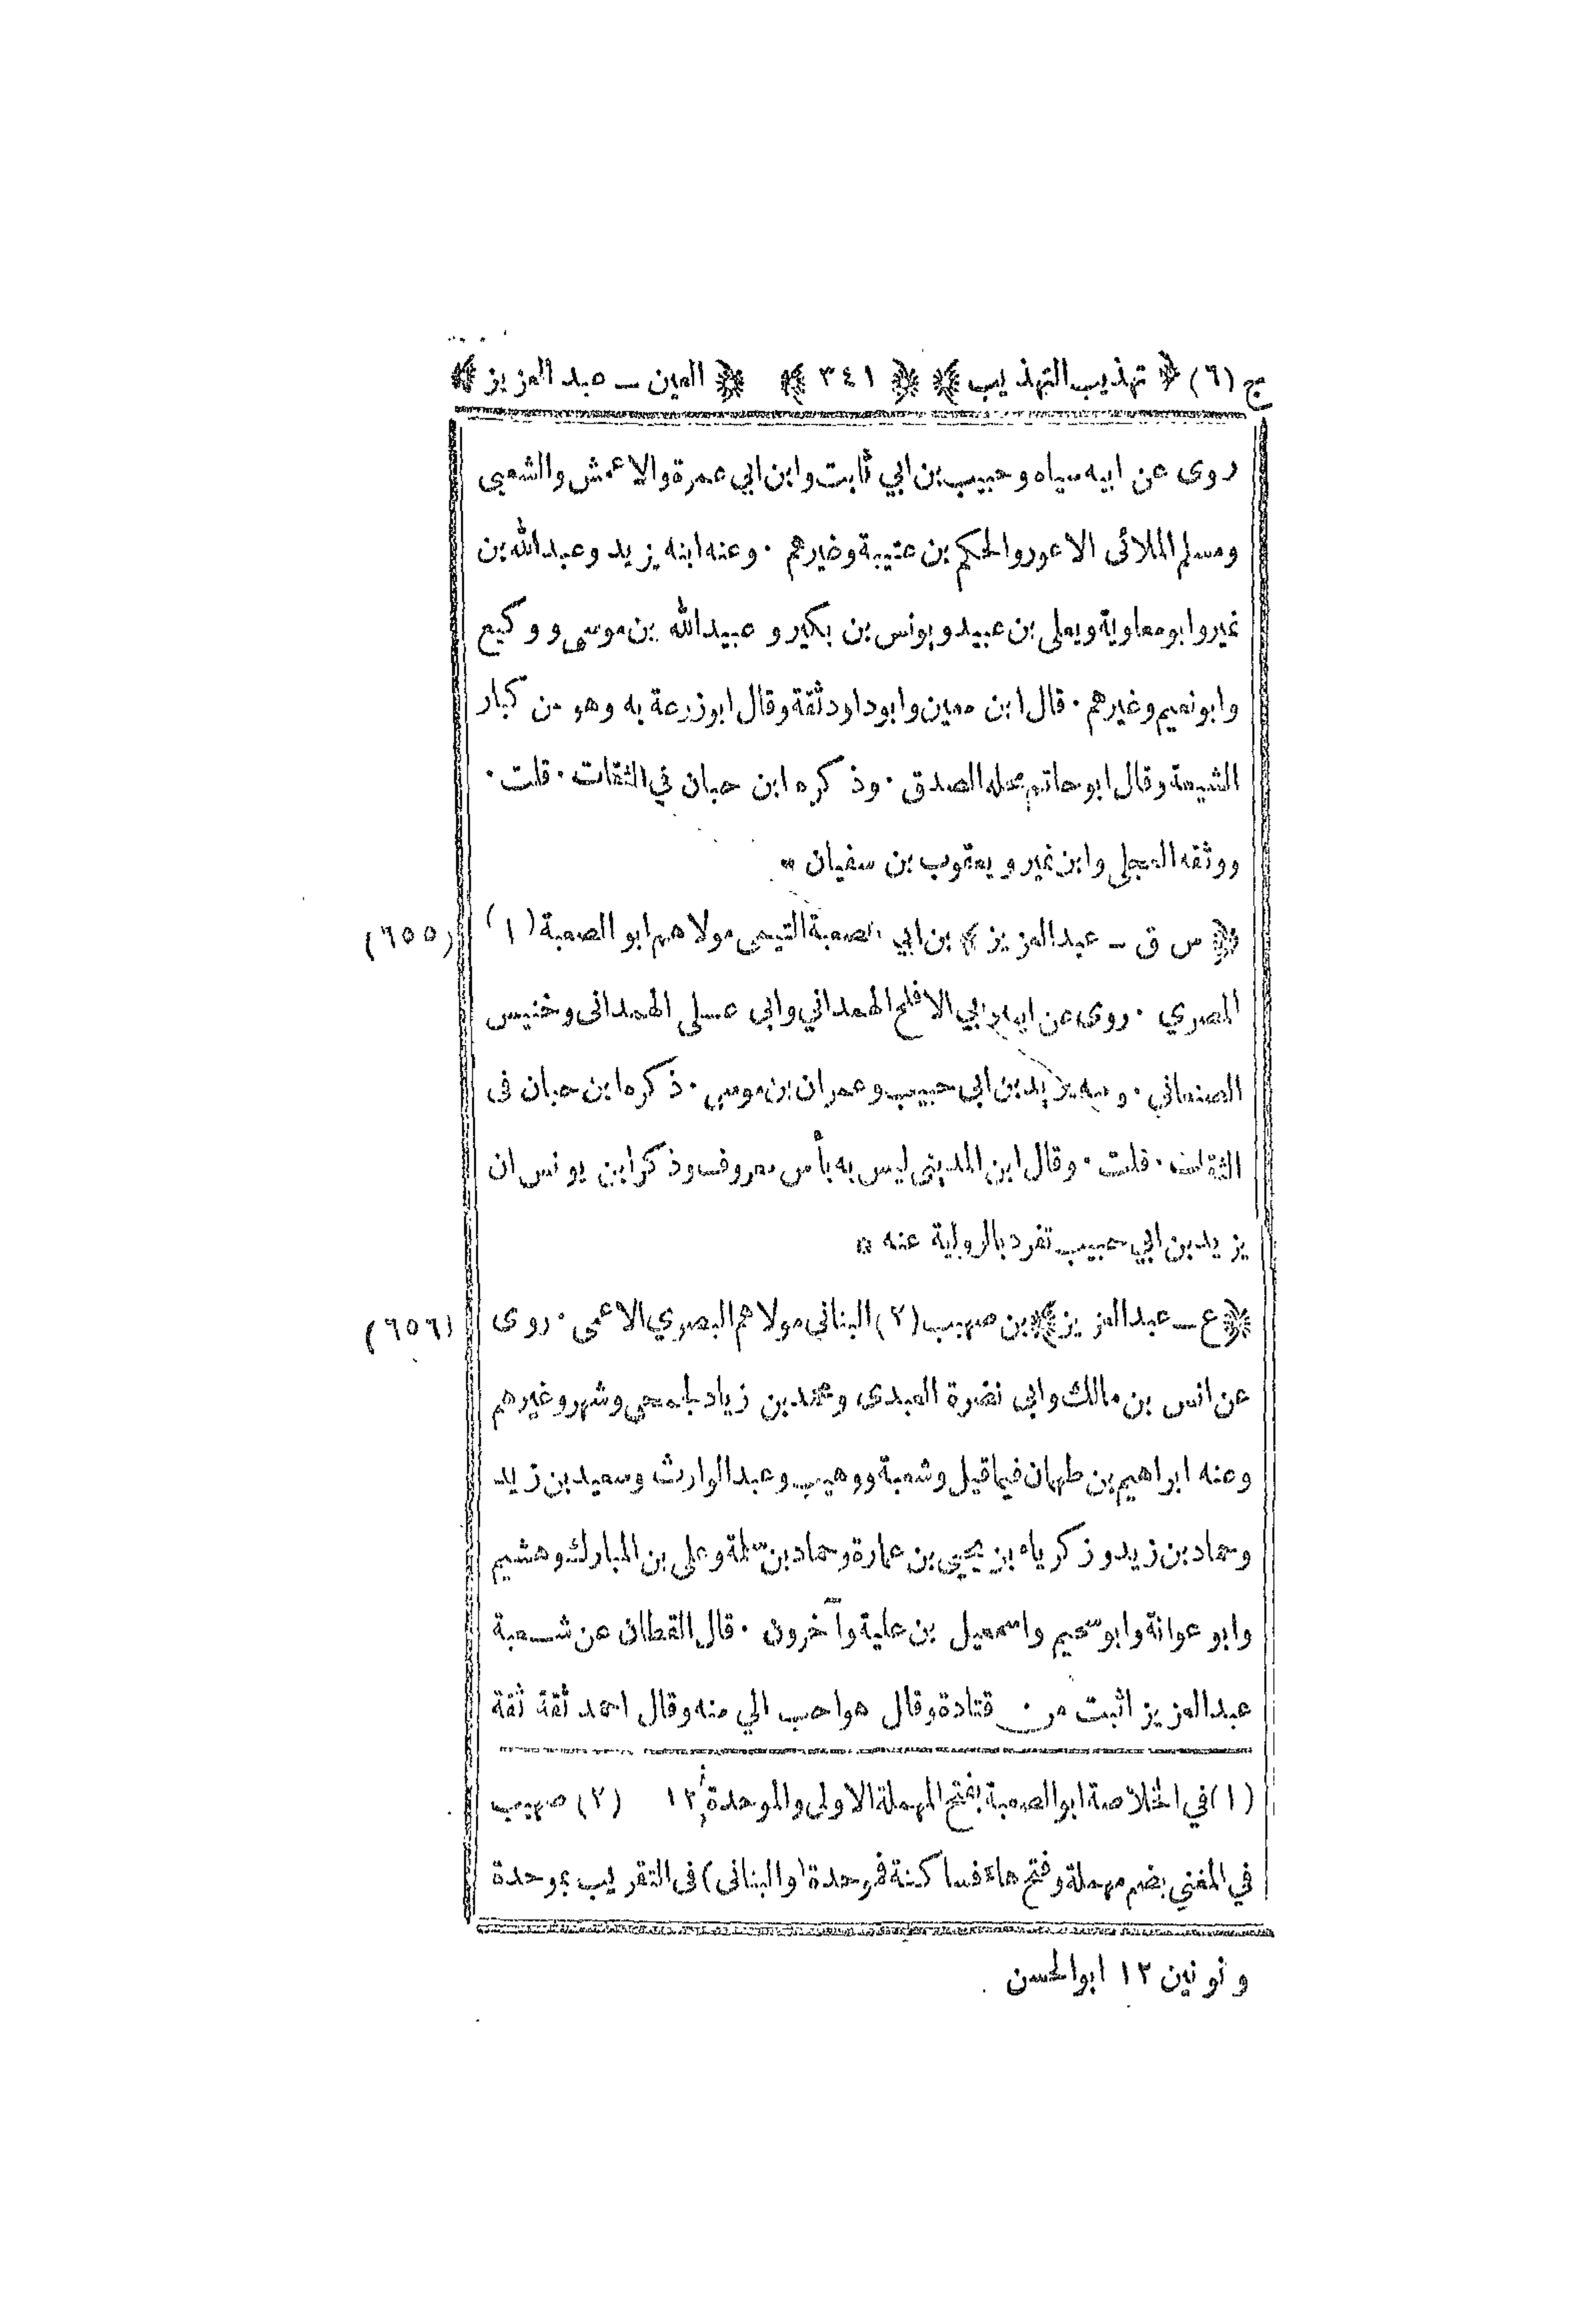 ج (٦) ﴿ تهذيب التهذيب ﴾ ﴿ ٣٤١ ﴾ ﴿ العين ـ عبد العزيز ﴾
روى عن ابيه سياه وحبيب بن ابي ثابت وابن ابي عمرة والاعمش والشعبى
ومسلم الملائى الاعور والحكم بن عتيبة وغيرهم ٠ وعنه ابنه يزيد وعبد الله بن
نمير وابو معاوية ويعلى بن عبيد ويونس بن بكير و عبيد الله بن موسى ووكيع
وابو نعيم وغيرهم ٠ قال ابن معين وابو داود ثقة وقال ابو زرعة به وهو من كبار
الشيعة وقال ابو حاتم محله الصدق ٠ وذكره ابن حبان في الثقات ٠ قلت ٠
ووثقه العجلي وابن نمير ويعقوب بن سفيان *
﴿ س ق ـ عبد العزيز ﴾ بن ابي الصعبة التيمى مولاهم ابو الصعبة (١) (٦٥٥)
المصري ٠ روى عن ابيه وابي الافلح الهمداني وابى عـلى الهمدانى وحنيس
الصنعاني ٠ وعنه يزيد بن ابي حبيب وعمران بن موسى ٠ ذكره ابن حبان فى
الثقات ٠ قلت ٠ وقال ابن المدينى ليس به بأس معروف وذكر ابن يونس ان
يزيد بن ابي حبيب تفرد بالرواية عنه *
﴿ ع ـ عبد العزيز ﴾ بن صهيب (٢) البنانى مولاهم البصري الاعمى ٠ روى (٦٥٦)
عن انس بن مالك وابى نضرة العبدى ومحمد بن زياد الجمحي وشهر وغيرهم
وعنه ابراهيم بن طهمان فيما قيل وشعبة ووهيب وعبد الوارث وسعيد بن زيد
وحماد بن زيد وزكرياء بن يحيى بن عمارة وحماد بن سلمة وعلى بن المبارك وهشيم
وابو عوانة وابو سحيم واسمعيل بن علية وآخرون ٠ قال القطان عن شـعبة
عبد العزيز اثبت من قتادة وقال هو احب الي منه وقال احمد ثقة ثقة
(١) في الخلاصة ابو الصعبة بفتح المهملة الاولى والموحدة ١٢ (٢) صهيب
في المغني بضم مهملة وفتح هاء فساكنة فموحدة (والبنانى) فى التقريب بموحدة
ونونين ١٢ ابو الحسن